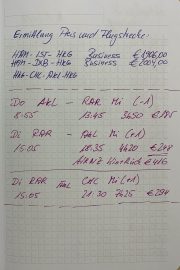 Ermittlung Preis und Flugstrecke:
HAM-IST-HKG Business €1.906,00
HAM-DXB-HKG Business €2.004,00
HKG-CHC-AKL-HKG
Do AKL - RAR Mi (-1)
8:55 13:45 3650 €185
Di RAR - AKL Mi (+1)
15:05 18:35 4620 €248
Hin & Rück €416
Di RAR CHC Mi (+1)
15:05 21:30 7625 €294